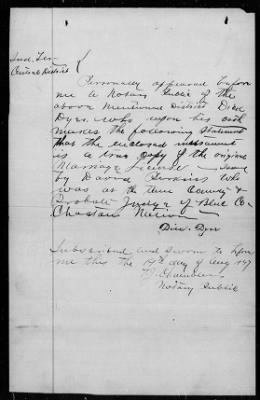 Ind. Ter.
Central District
Personally appeared before
me a Notary Public of the
above mentioned District Dixe
Dyer who upon his oath
makes the following statement
that the enclosed instrument
is a true copy of the original
Marriage License issued
by David Perkins who
was at the time County &
Probate Judge of Blue Co
Choctaw Nation
Dixe. Dyer
Subscribed and sworn to before
me this the 19th day of Aug
Chambers
Notary Public